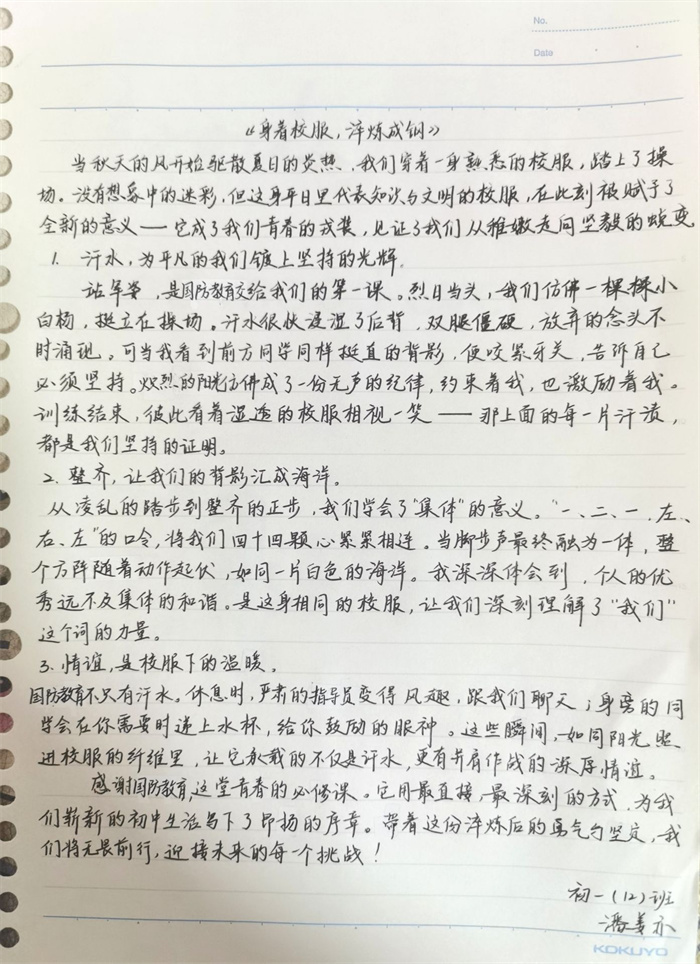 No.
Date
《身着校服，淬炼成钢》
当秋天的风开始驱散夏日的炎热，我们穿着一身熟悉的校服，踏上了操
场。没有想象中的迷彩，但这身平日里代表知识与文明的校服，在此刻被赋予了
全新的意义——它成了我们青春的戎装，见证了我们从稚嫩走向坚毅的蜕变
1. 汗水，为平凡的我们镀上坚持的光辉。
站军姿，是国防教育交给我们的第一课。烈日当头，我们仿佛一棵棵小
白杨，挺立在操场。汗水很快浸湿了后背，双腿僵硬，放弃的念头不
时涌现。可当我看到前方同学同样挺直的背影，便咬紧牙关，告诉自己
必须坚持。炽烈的阳光仿佛成了一份无声的纪律，约束着我，也激励着我。
训练结束，彼此看着湿透的校服相视一笑——那上面的每一片汗渍，
都是我们坚持的证明。
2. 整齐，让我们的背影汇成海洋。
从凌乱的踏步到整齐的正步，我们学会了"集体"的意义。"一、二、一，左、
右、左"的口令，将我们四十四颗心紧紧相连。当脚步声最终融为一体，整
个方阵随着动作起伏，如同一片白色的海洋。我深深体会到，个人的优
秀远不及集体的和谐。是这身相同的校服，让我们深刻理解了"我们"
这个词的力量。
3. 情谊，是校服下的温暖。
国防教育不只有汗水。休息时，严肃的指导员变得风趣，跟我们聊天；身旁的同
学会在你需要时递上水杯，给你鼓励的眼神。这些瞬间，如同阳光照
进校服的纤维里，让它承载的不仅是汗水，更有并肩作战的深厚情谊。
感谢国防教育，这堂青春的必修课。它用最直接，最深刻的方式，为我
们崭新的初中生活写下了昂扬的序章。带着这份淬炼后的勇气与坚定，我
们将无畏前行，迎接未来的每一个挑战！
初一（12）班
潘姜亦
KOKUYO